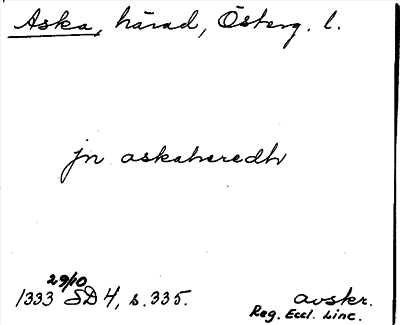 Aska, härad, Österg. l.
jn askahæredh
29/10
1333 SD 4, s. 335.
avskr.
Reg. Eccl. Linc.